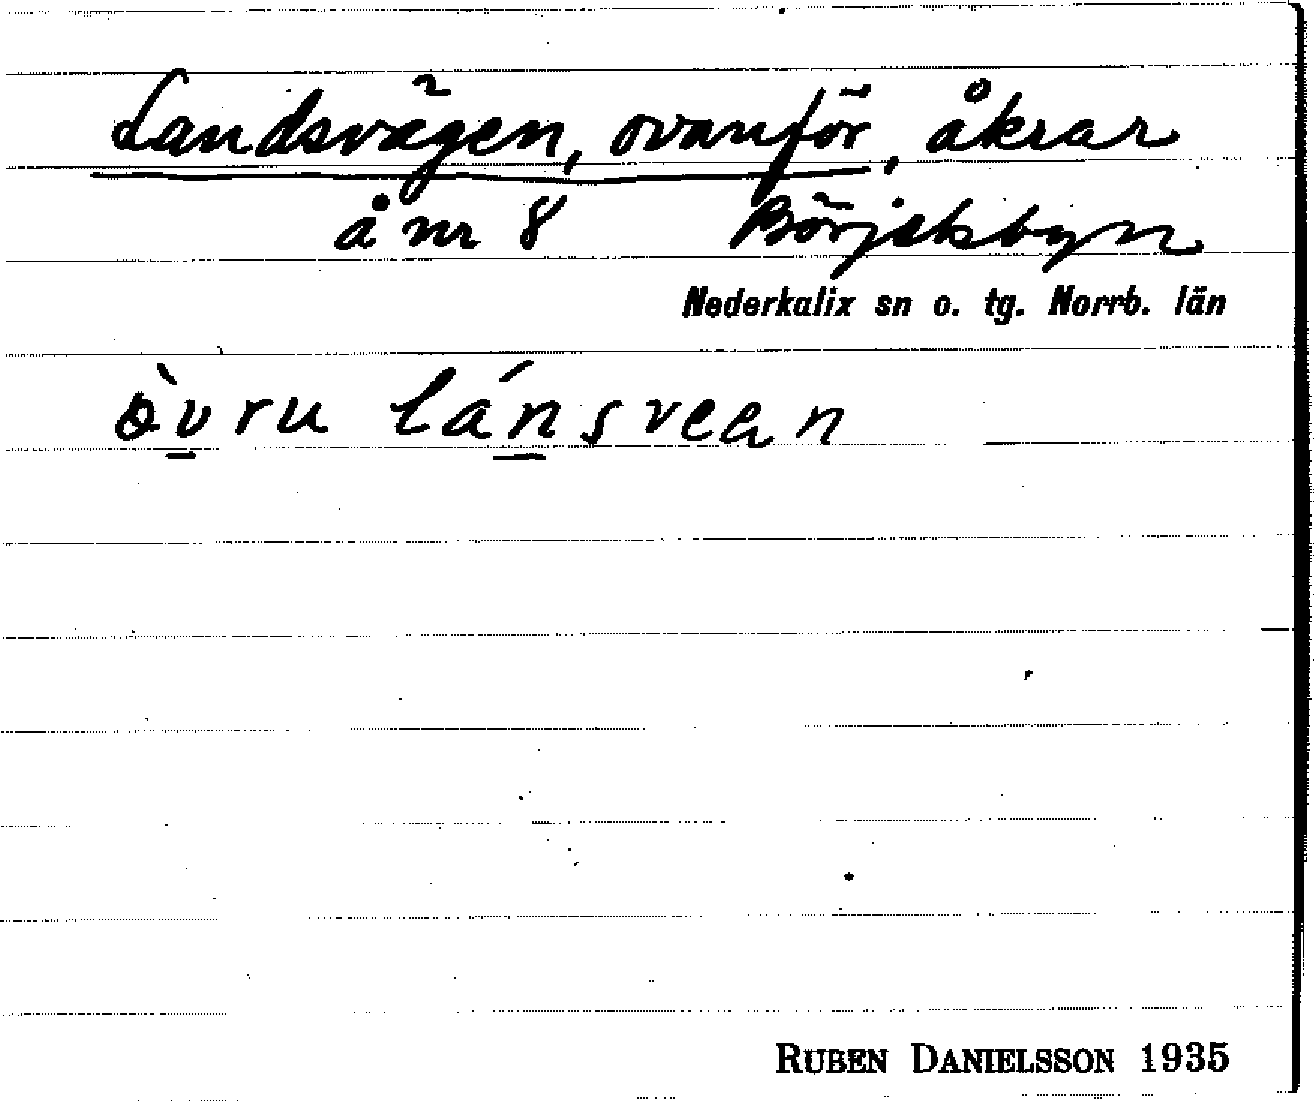 Landsvägen, ovanför, åkrar
å nr 8 Börjelsbyn
Nederkalix sn o. tg. Norrb. län
òvru lánsvean
RUBEN DANIELSSON 1935